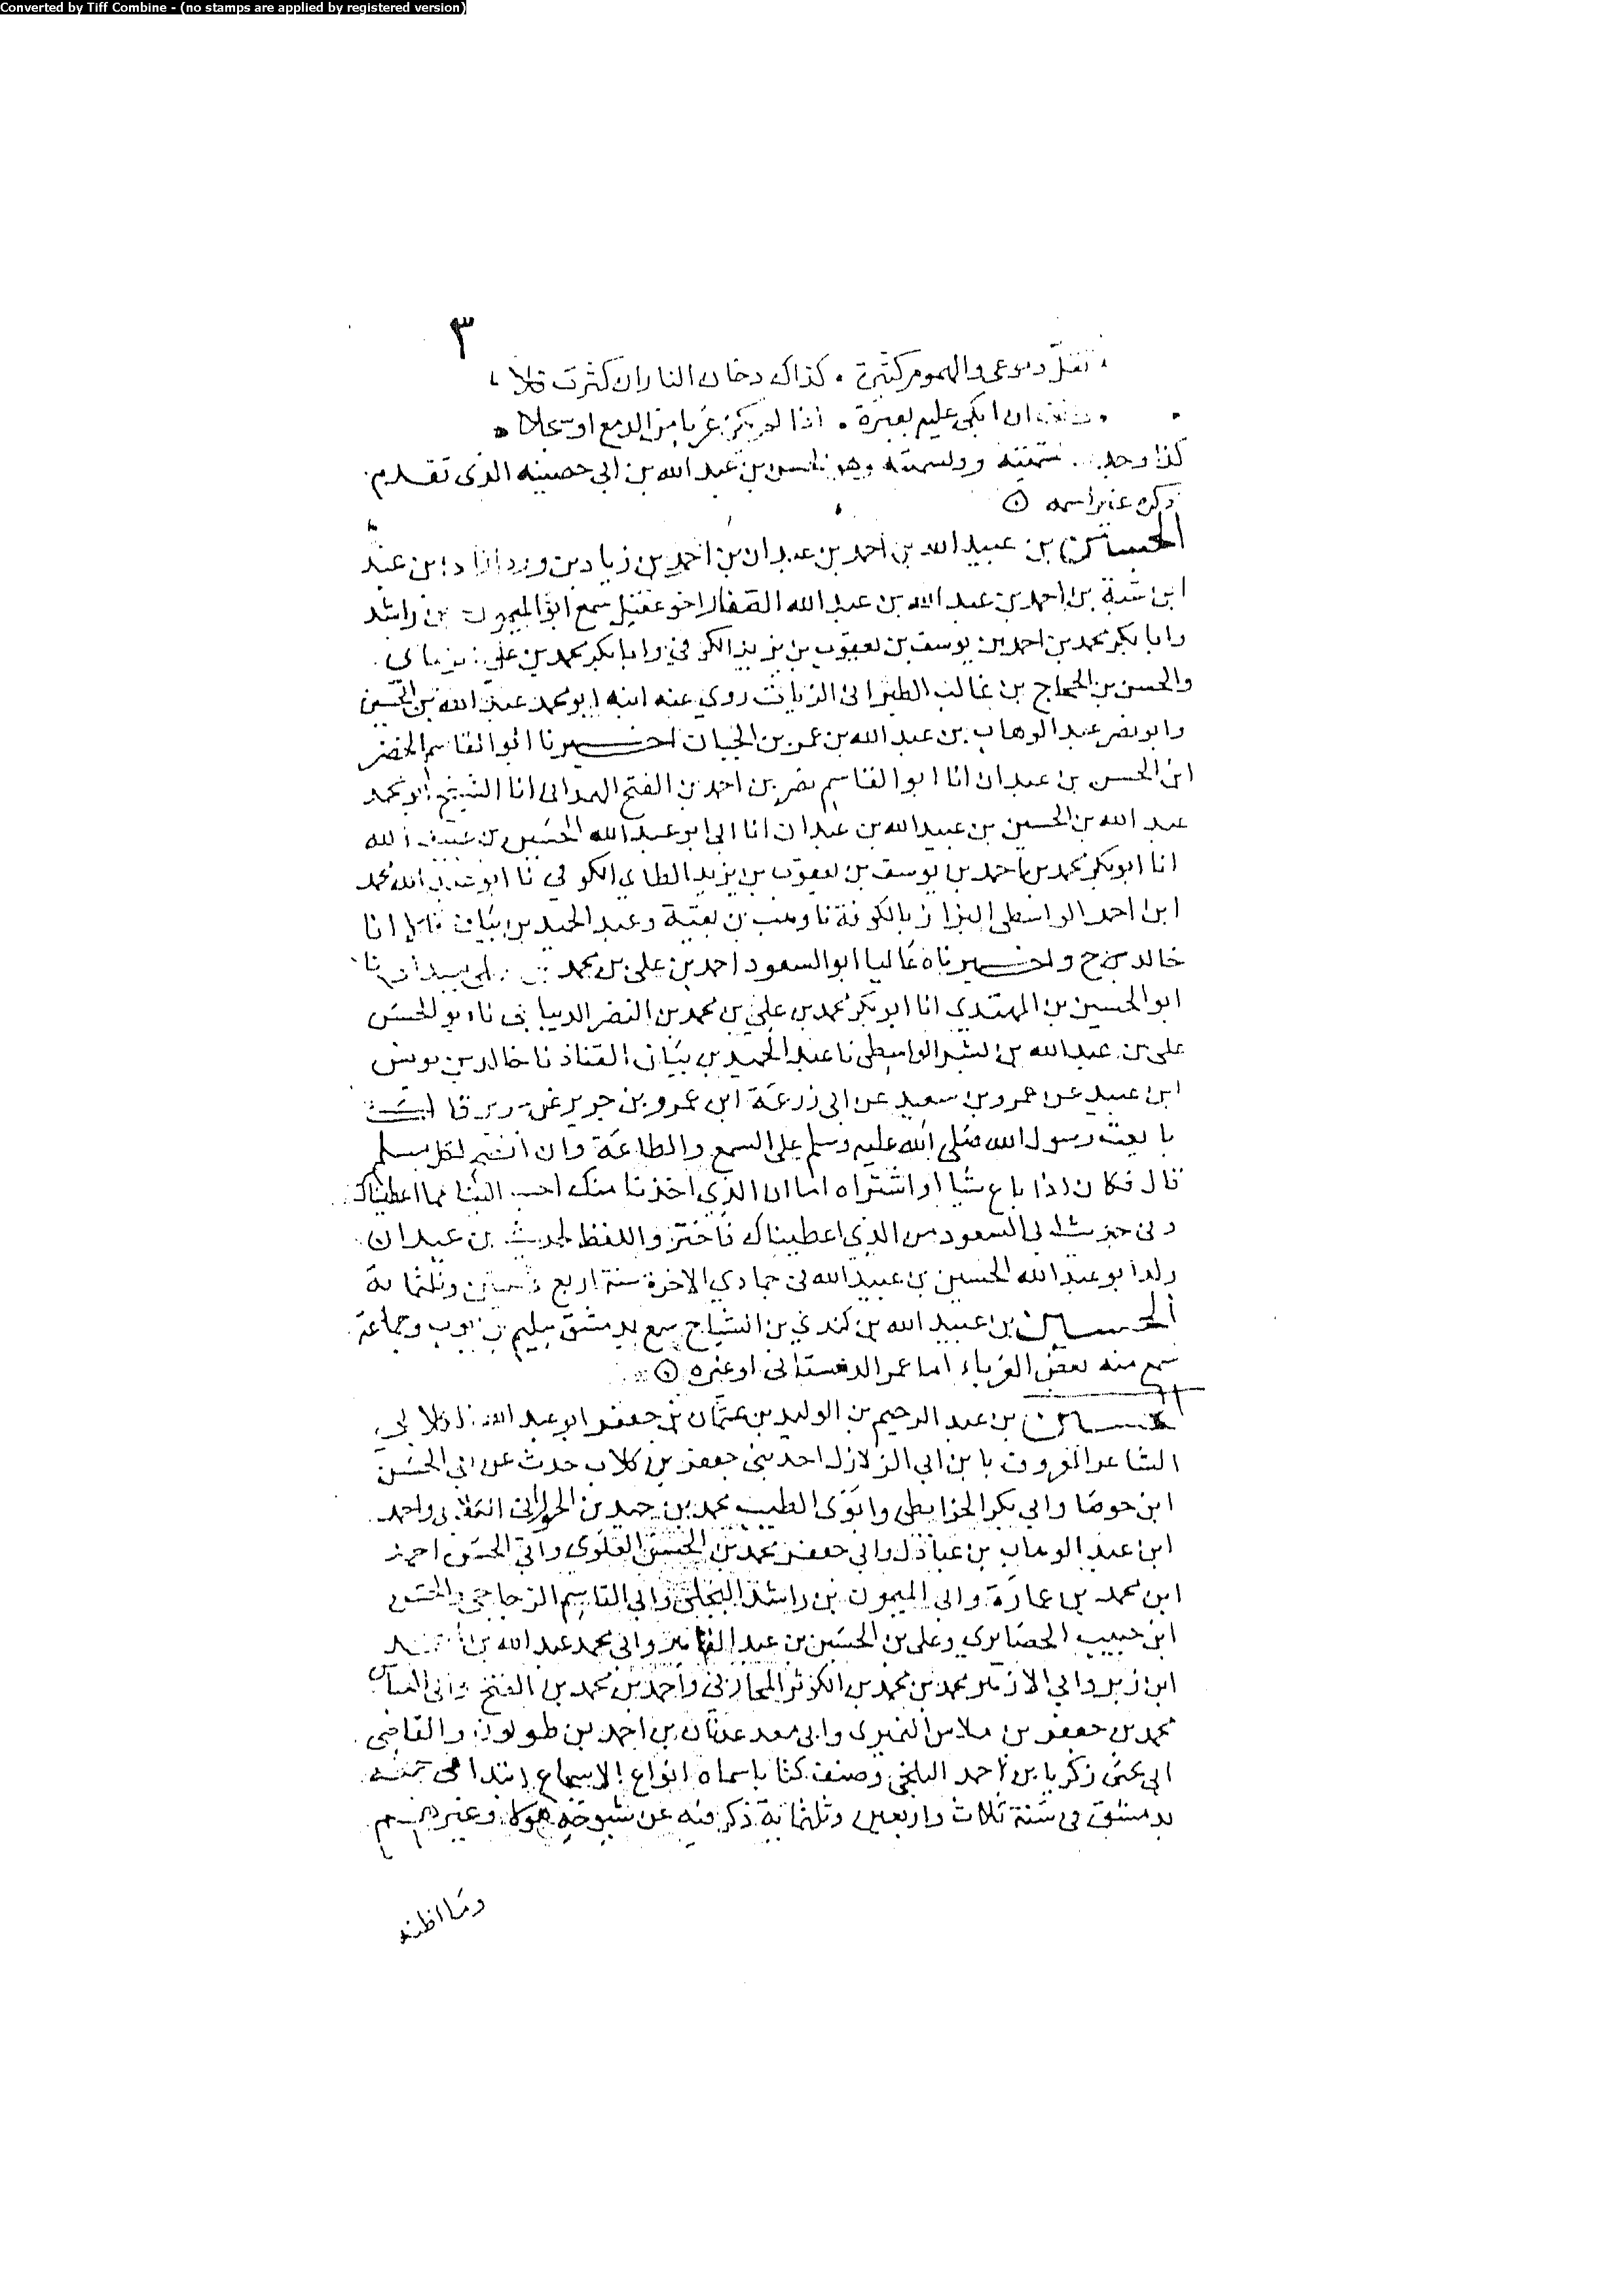 Converted by Tiff Combine - (no stamps are applied by registered version)
٣
تقل دموعى والهموم كثيرة . كذاك دخان النار ان كثرت قلا
ان ابكى عليم بعبرة . اذا لم يكن غربا من الدمع او سجلا
كذا وجد نسبته وهو بن عبد الله بن ابى حصينه الذى تقدم
ذكره
الحسين بن عبيد الله بن احمد بن عبدان بن احمد بن زياد بن ورد ازاد بن عبد
ابن شبة بن احمد بن عبد الله بن عبد الله الصفار اخو عقيل سمع ابا الميمون بن راشد
وابا بكر محمد بن احمد بن يوسف بن يعقوب بن يزيد الكوفي وابا بكر محمد بن علي
والحسن بن الحجاج بن غالب الطبرانى الزيات روي عنه ابنه ابو محمد عبد الله بن الحسين
وابو نصر عبد الوهاب بن عبد الله بن عمر بن الجبان اخبرنا ابو القاسم الخضر
ابن الحسين بن عبدان انا ابو القاسم نصر بن احمد بن الفتح الهمدانى انا الشيخ ابو محمد
عبد الله بن الحسين بن عبيد الله بن عبدان انا ابى ابو عبد الله الحسين بن عبيد الله
انا ابو بكر محمد بن احمد بن يوسف بن يعقوب بن يزيد الطاي الكوفي نا ابو عبد الله محمد
ابن احمد الواسطى البزاز بالكوفة نا وهب بن بقية وعبد الحميد بن بيان انا
خالد ح واخبرناه عاليا ابو السعود احمد بن على بن محمد نا
ابو الحسين بن المهتدي انا ابو بكر محمد بن علي بن محمد بن النضر الديباجى نا ابو الحسن
على بن عبد الله بن مبشر الواسطى نا عبد الحميد بن بيان القناد نا خالد بن يونس
ابن عبيد عن عمرو بن سعيد عن ابى زرعة ابن عمرو بن جرير عن جرير قال
بايعت رسول الله صلى الله عليه وسلم على السمع والطاعة وان انصح لكل مسلم
قال فكان اذا باع شيا او اشتراه اما ان الذي اخذنا منك احب الينا مما اعطيناك
وفى حديث ابى السعود من الذي اعطيناك فاختر واللفظ لحديث بن عبدان
ولد ابو عبد الله الحسين بن عبيد الله فى جمادي الاخرة سنة اربع وثلثماية
الحسين بن عبيد الله بن كندي بن الشياح سمع بدمشق سليم بن ايوب وجماعة
سمع منه بعض الغرباء اما عمر الدهستانى او غيره
الحسين بن عبد الرحيم بن الوليد بن عثمان بن جعفر ابو عبد الله الكلابي
الشاعر المعروف بابن ابي الزلازل احد بني جعفر بن كلاب حدث عن ابي الحسن
ابن جوصا وابي بكر الخرايطى وابوى الطيب محمد بن حميد بن الحورانى واحمد
ابن عبد الوهاب بن عبادل وابي جعفر محمد بن الحسن العلوي وابي الحسن احمد
ابن محمد بن عمارة وابى الميمون بن راشد البجلي وابي القاسم الزجاجي والحسن
ابن حبيب الحصايري وعلى بن الحسين بن عبد وابي محمد عبد الله بن احمد
ابن زبر وابي الازهر محمد بن محمد بن الكوثر المحاربي واحمد بن محمد بن الفتح وابى العباس
محمد بن جعفر بن ملاس النميرى وابى معد عدنان بن احمد بن طولون والقاضي
ابى يحيى زكريا بن احمد البلخي وصنف كتابا سماه انواع الاسجاع ابتدا فى جمعه
بدمشق فى سنة ثلاث واربعين وثلثماية ذكر فيه عن شيوخه هولاء وغيرهم
وما اظنه